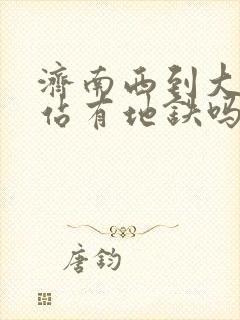 濟南西到大
佔有地鉄嗎
唐鈞